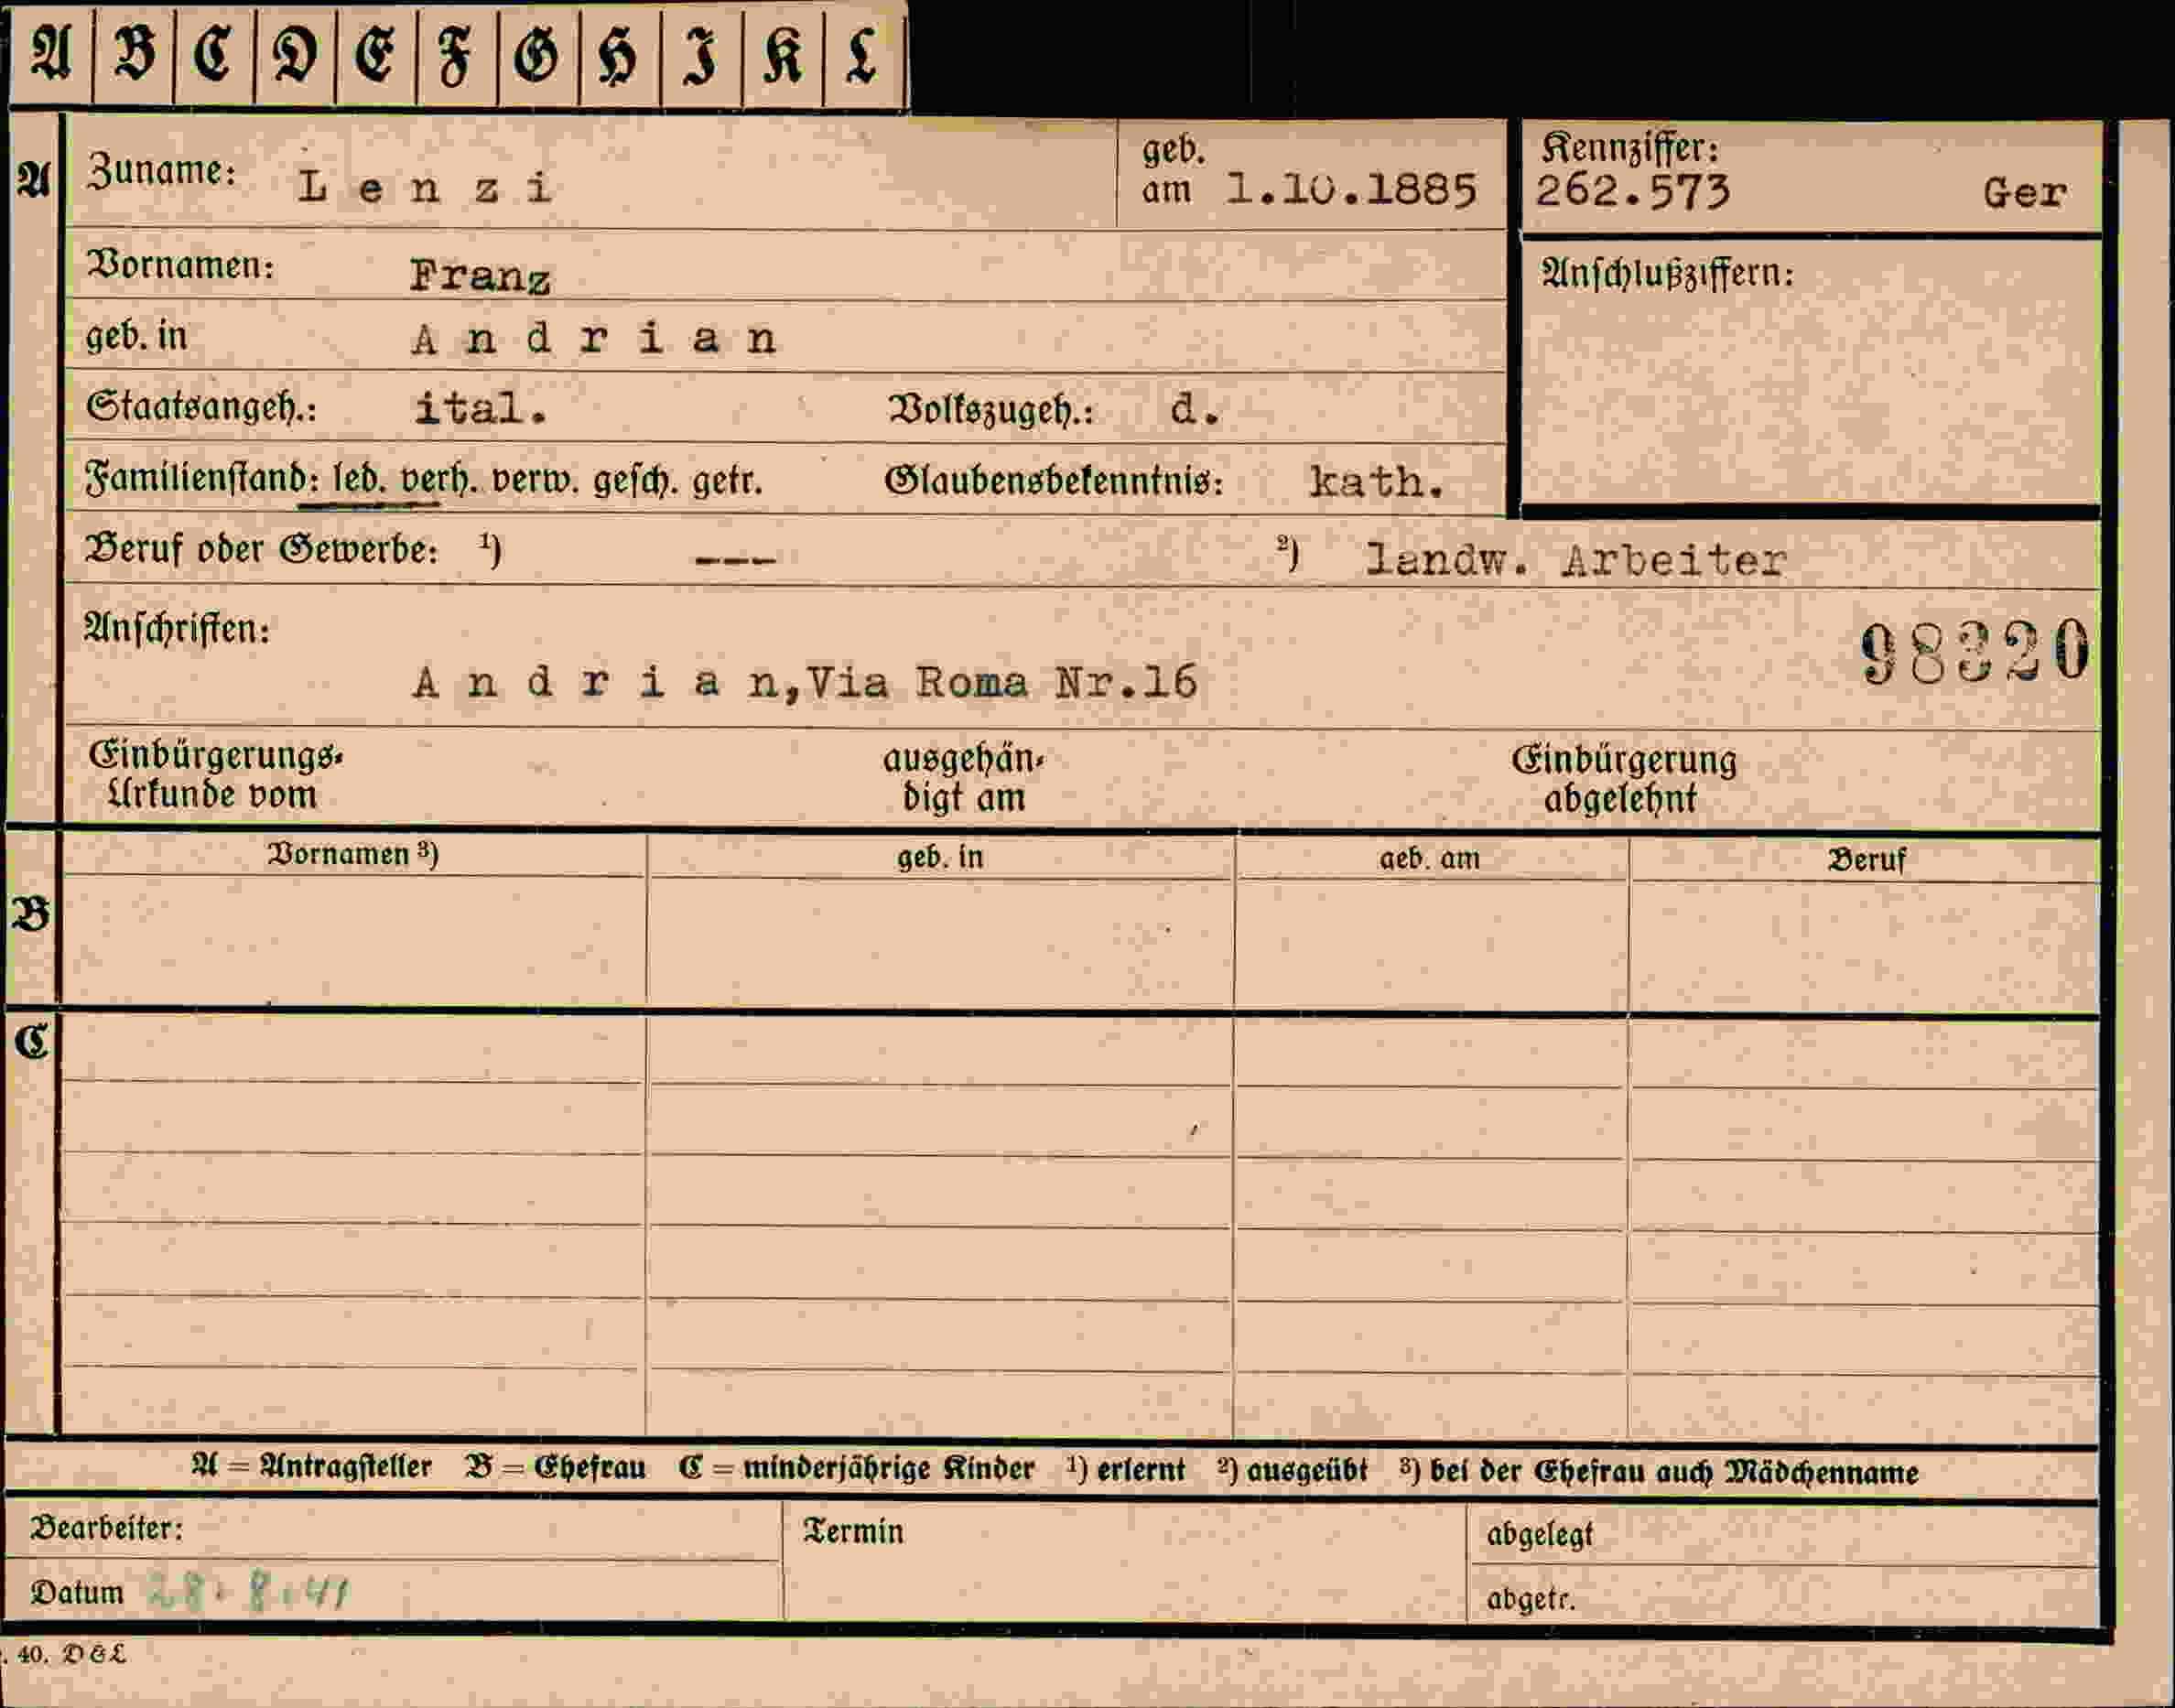 A B C D E F G H I K L
A Zuname: Lenzi geb. am 1.10.1885 Kennziffer: 262.573 Ger
Vornamen: Franz Anschlußziffern:
geb. in Andrian
Staatsangeh.: ital. Volkszugeh.: d.
Familienstand: led. verh. verw. gesch. getr. Glaubensbekenntnis: kath.
Beruf oder Gewerbe: ¹) --- ²) landw. Arbeiter
Anschriften: 98320
Andrian, Via Roma Nr.16
Einbürgerungs- ausgehän- Einbürgerung
Urkunde vom digt am abgelehnt
Vornamen ³) geb. in geb. am Beruf
B
C
A = Antragsteller B = Ehefrau C = minderjährige Kinder ¹) erlernt ²) ausgeübt ³) bei der Ehefrau auch Mädchenname
Bearbeiter: Termin abgelegt
Datum 28.8.41 abgetr.
. 40. D&L